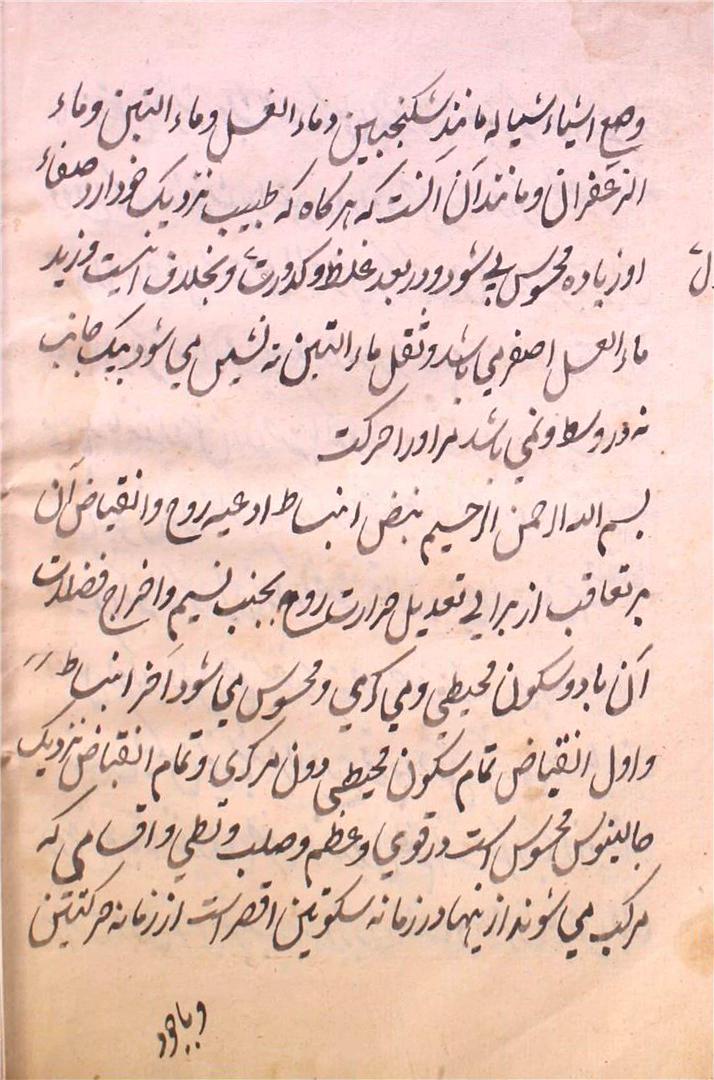 وضع اشیاء سیاله مانند سکنجبین و ماء العسل و ماء التبن و ماء
الزعفران و مانند آن آنست که هر کاه که طبیب نزدیک خود دارد صفاء
او زیاده محسوس می شود و در بعد غلظ و کدورت و بخلاف اینست و زبد
ماء العسل اصفر می باشد و ثقل ماء التبن ته نشین می شود بیک جانب
نه در وسط و نمی باشد مر او را حرکت
بسم الله الرحمن الرحیم نبض انبساط ادعیه روح و انقباض آن
بر تعاقب از برای تعدیل حرارت روح بجذب نسیم و اخراج فضلات
آن با دو سکون محیطی و مرکزی و محسوس می شود آخر انبساط
و اول انقباض تمام سکون محیطی دون مرکزی و تمام انقباض نزدیک
جالینوس محسوس است در قوی و عظیم و صلب و بطی و اقسامی که
مرکب می شوند از ینها و زمانه سکونین اقصر است از زمانه حرکتین
وباجود